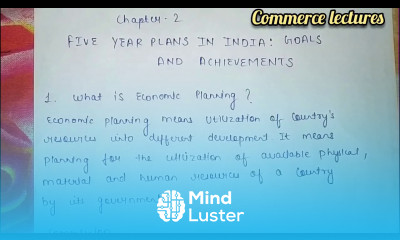 Commerce lectures
Chapter - 2
FIVE YEAR PLANS IN INDIA: GOALS
AND ACHIEVEMENTS
1. What is Economic Planning?
Economic planning means utilization of country's
resources into different development It means
planning for the utilization of available physical,
material and human resources of a country
by its
Mind
Luster